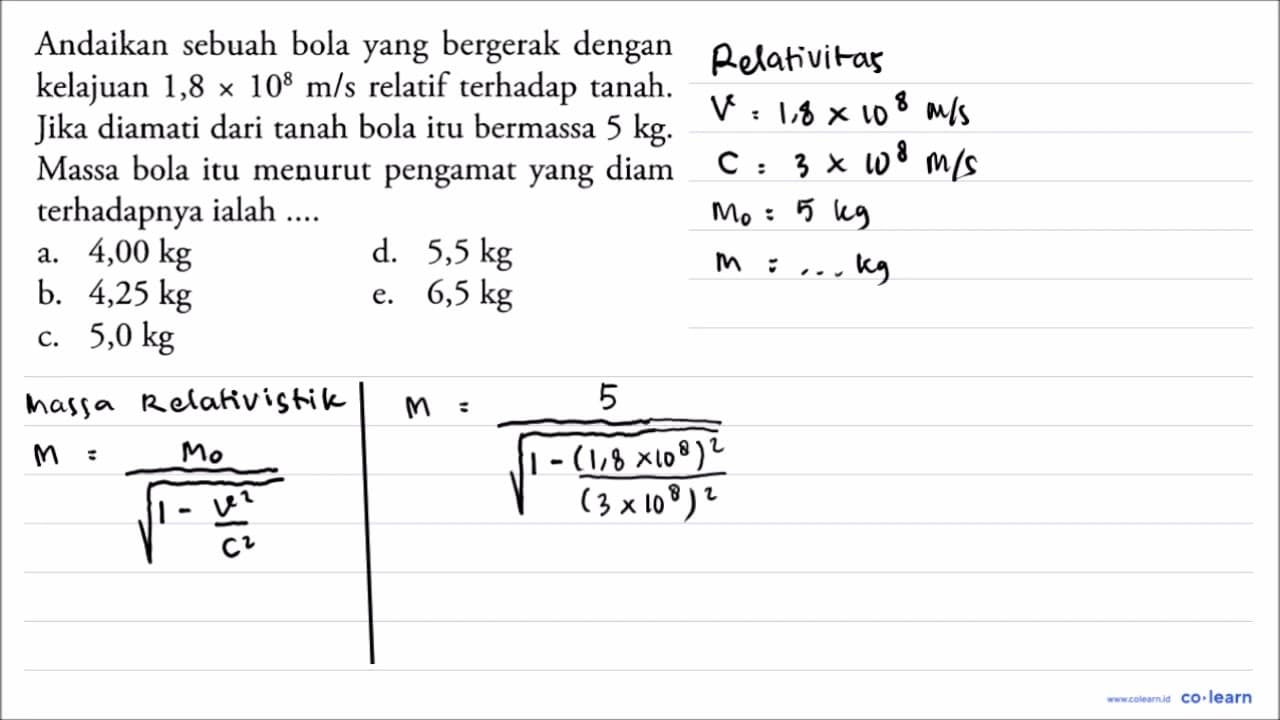 Andaikan sebuah bola yang bergerak dengan
kelajuan 1,8 × 10⁸ m/s relatif terhadap tanah.
Jika diamati dari tanah bola itu bermassa 5 kg.
Massa bola itu menurut pengamat yang diam
terhadapnya ialah ....
a. 4,00 kg d. 5,5 kg
b. 4,25 kg e. 6,5 kg
c. 5,0 kg
Relativitas
V = 1,8 × 10⁸ m/s
C = 3 × 10⁸ m/s
M₀ = 5 kg
m = ... kg
Massa Relativistik
M = M₀ / √(1 - V²/C²)
M = 5 / √(1 - (1,8 × 10⁸)² / (3 × 10⁸)²)
www.colearn.id co·learn